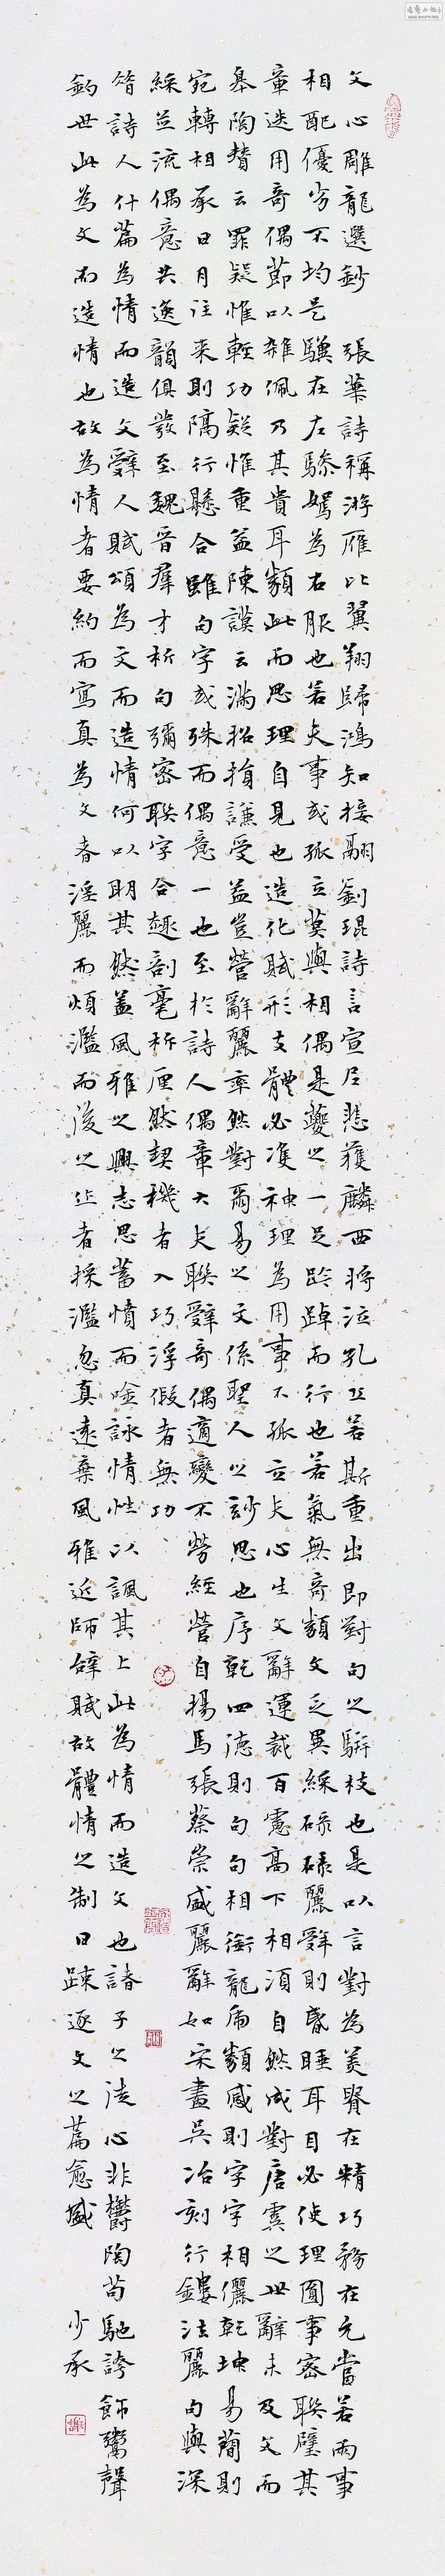 文心雕龍選鈔 張華詩稱游雁比翼翔歸鴻知接翮劉琨詩言宣尼悲獲麟西狩泣孔丘若斯重出即對句之駢枝也是以言對為美貴在精巧務在允當若兩事
相配優劣不均是驥在左驂駑為右服也若夫事或孤立莫與相偶是夔之一足趻踔而行也若氣無奇類文乏異綵碌碌麗辭則昏睡耳目必使理圓事密聯璧其
章迭用奇偶節以雜佩乃其貴耳類此而思理自見也造化賦形支體必雙神理為用事不孤立夫心生文辭運裁百慮高下相須自然成對唐虞之世辭未及文而
皋陶贊云罪疑惟輕功疑惟重益陳謨云滿招損謙受益豈營辭麗率然對爾易之文係聖人之妙思也序乾四德則句句相銜龍虎類感則字字相儷乾坤易簡則
宛轉相承日月往來則隔行懸合雖句字或殊而偶意一也至於詩人偶章大夫聯辭奇偶適變不勞經營自揚馬張蔡崇盛麗辭如宋畫吳冶刻行鏤法麗句與深
綵並流偶意共逸韻俱發至魏晉羣才析句彌密聯字合趣剖毫析厘然契機者入巧浮假者無功
昝詩人什篇為情而造文辭人賦頌為文而造情何以明其然蓋風雅之興志思蓄憤而吟詠情性以諷其上此為情而造文也諸子之徒心非鬱陶苟馳誇飾鬻聲
釣世此為文而造情也故為情者要約而寫真為文者淫麗而煩濫而後之作者採濫忽真遠棄風雅近師辭賦故體情之制日疎逐文之篇愈盛 少承